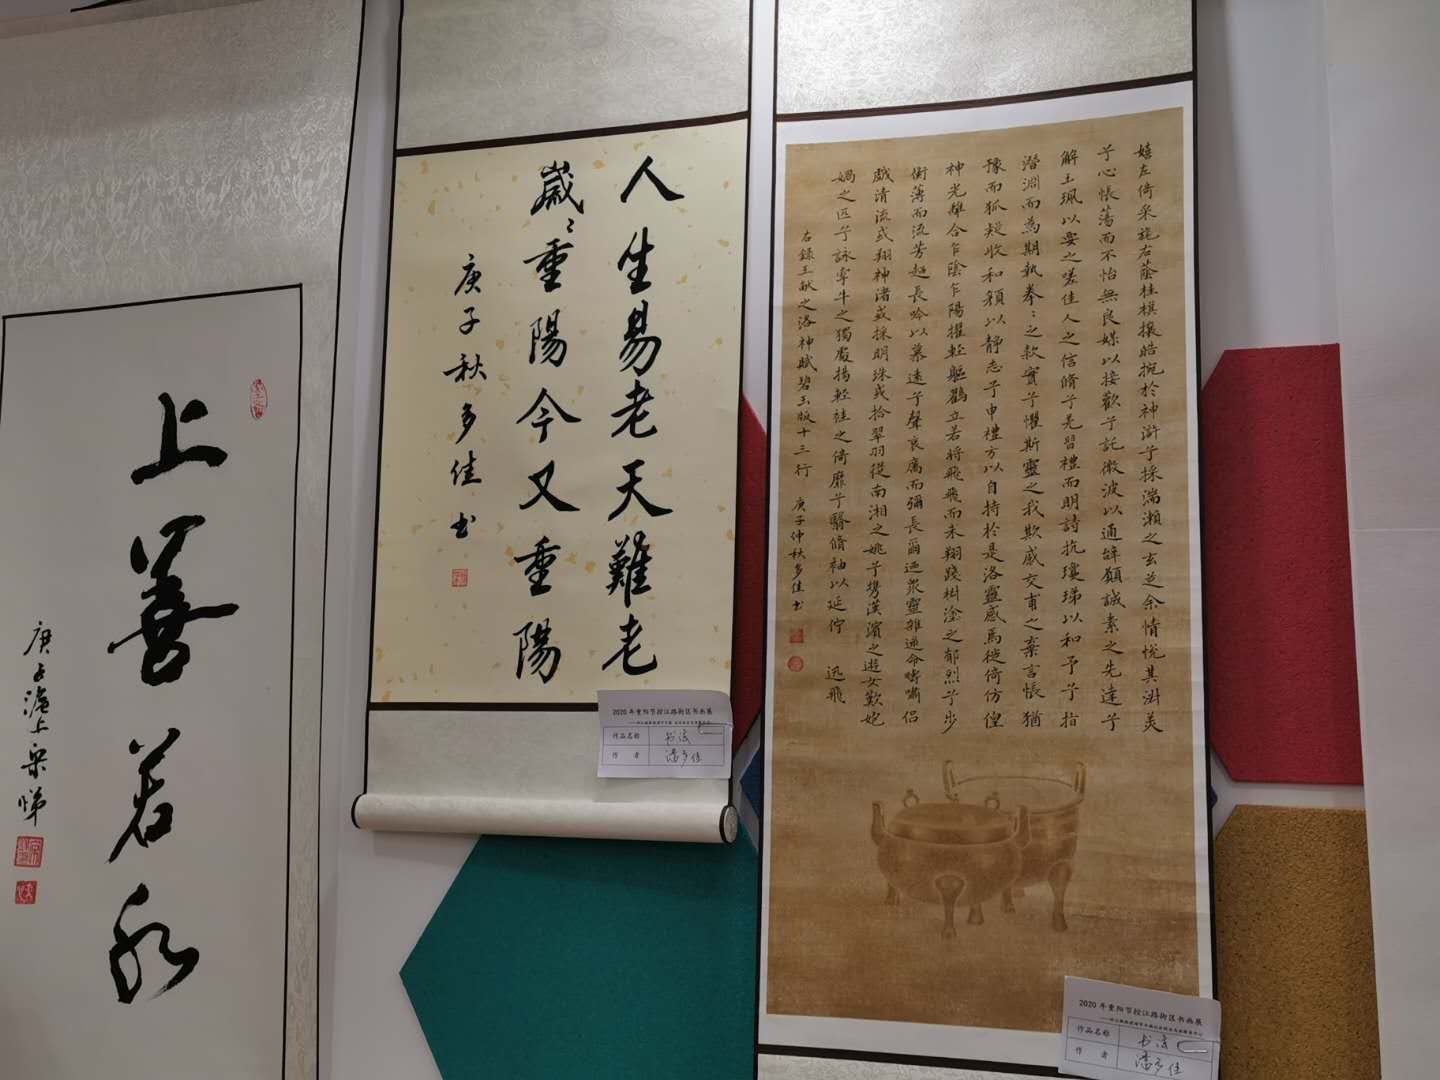 嬉左倚采旄右蔭桂旗攘皓捥於神滸兮採湍瀨之玄芝余情悅其淑美
兮心悵蕩而不怡無良媒以接歡兮託微波以通辭願誠素之先達兮
解玉珮以要之嗟佳人之信脩兮羌習禮而明詩抗瓊珶以和予兮指
潛淵而為期執拳〻之款實兮懼斯靈之我欺感交甫之棄言悵猶
豫而狐疑收和顏以靜志兮申禮方以自持於是洛靈感焉徙倚仿偟
神光離合乍陰乍陽擢輕軀鶴立若將飛飛而未翔踐椒塗之郁烈兮步
衡薄而流芳超長吟以慕遠兮聲哀厲而彌長爾迺眾靈雜遝命疇嘯侶
戲清流或翔神渚或採明珠或拾翠羽從南湘之姚兮携漢濱之遊女歎妃
媧之匹兮詠牽牛之獨處揚輕袿之倚靡兮翳脩袖以延佇 迅飛
右錄王献之洛神賦碧玉版十三行 庚子仲秋多佳书
人生易老天難老
歲〻重陽今又重陽
庚子秋多佳书
上善若水
庚子滬上
2020年重阳节控江路街区书画展
作品名称 书法
作 者 潘多佳
2020年重阳节控江路街区书画展
作品名称 书法
作 者 潘多佳